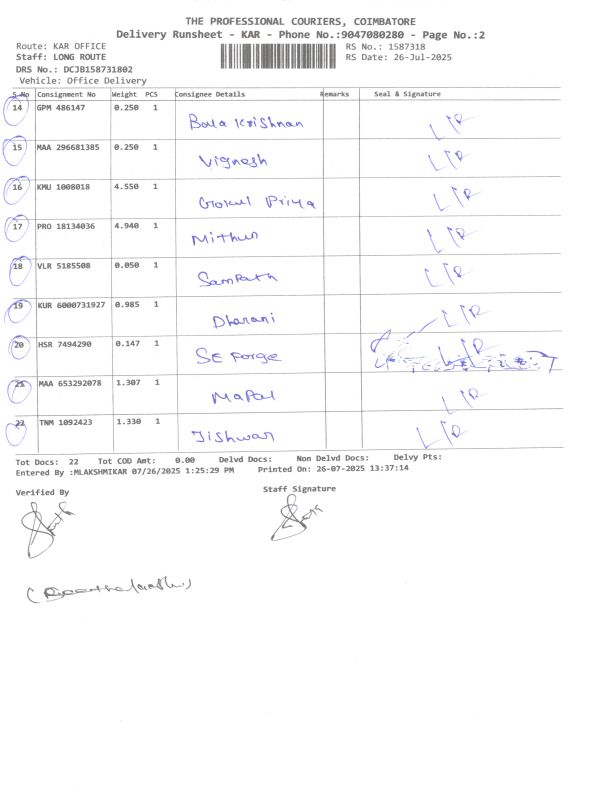 THE PROFESSIONAL COURIERS, COIMBATORE
Delivery Runsheet - KAR - Phone No.:9047080280 - Page No.:2
Route: KAR OFFICE RS No.: 1587318
Staff: LONG ROUTE RS Date: 26-Jul-2025
DRS No.: DCJB158731802
Vehicle: Office Delivery
S-No Consignment No Weight PCS Consignee Details Remarks Seal & Signature
14 GPM 486147 0.250 1 Bala Krishnan
15 MAA 296681385 0.250 1 Vignesh
16 KMU 1008018 4.550 1 Gokul Priya
17 PRO 18134036 4.940 1 Mithun
18 VLR 5185508 0.050 1 Sampath
19 KUR 6000731927 0.985 1 Dharani
20 HSR 7494290 0.147 1 SE Forge
21 MAA 653292078 1.307 1 Mapal
22 TNM 1092423 1.330 1 Jishwar
Tot Docs: 22 Tot COD Amt: 0.00 Delvd Docs: Non Delvd Docs: Delvy Pts:
Entered By :MLAKSHMIKAR 07/26/2025 1:25:29 PM Printed On: 26-07-2025 13:37:14
Verified By Staff Signature